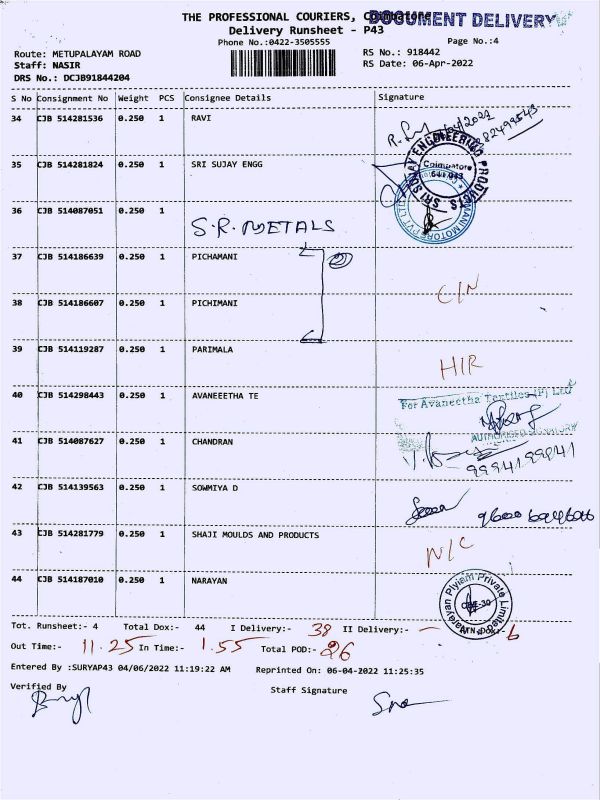 THE PROFESSIONAL COURIERS, Coimbatore
DOCUMENT DELIVERY
Delivery Runsheet - P43
Phone No.:0422-3505555
Page No.:4
Route: METUPALAYAM ROAD
RS No.: 918442
Staff: NASIR
RS Date: 06-Apr-2022
DRS No.: DCJB91844204
S No Consignment No Weight PCS Consignee Details Signature
34 CJB 514281536 0.250 1 RAVI
35 CJB 514281824 0.250 1 SRI SUJAY ENGG
SRI SUJAY ENGINEERING PRODUCTS
Coimbatore
641 043
36 CJB 514087051 0.250 1 S.R. METALS
MOTORS PVT LTD
37 CJB 514186639 0.250 1 PICHAMANI
38 CJB 514186607 0.250 1 PICHIMANI
C/N
39 CJB 514119287 0.250 1 PARIMALA
H/R
40 CJB 514298443 0.250 1 AVANEEETHA TE
For Avaneetha Textiles (P) Ltd
AUTHORISED SIGNATORY
41 CJB 514087627 0.250 1 CHANDRAN
9994199941
42 CJB 514139563 0.250 1 SOWMIYA D
43 CJB 514281779 0.250 1 SHAJI MOULDS AND PRODUCTS
N/C
44 CJB 514187010 0.250 1 NARAYAN
Private Limited
CBE-30
Tot. Runsheet:- 4 Total Dox:- 44 I Delivery:- 38 II Delivery:- — 6
Out Time:- 11.25 In Time:- 1.55 Total POD:- 26
Entered By :SURYAP43 04/06/2022 11:19:22 AM Reprinted On: 06-04-2022 11:25:35
Verified By
Staff Signature